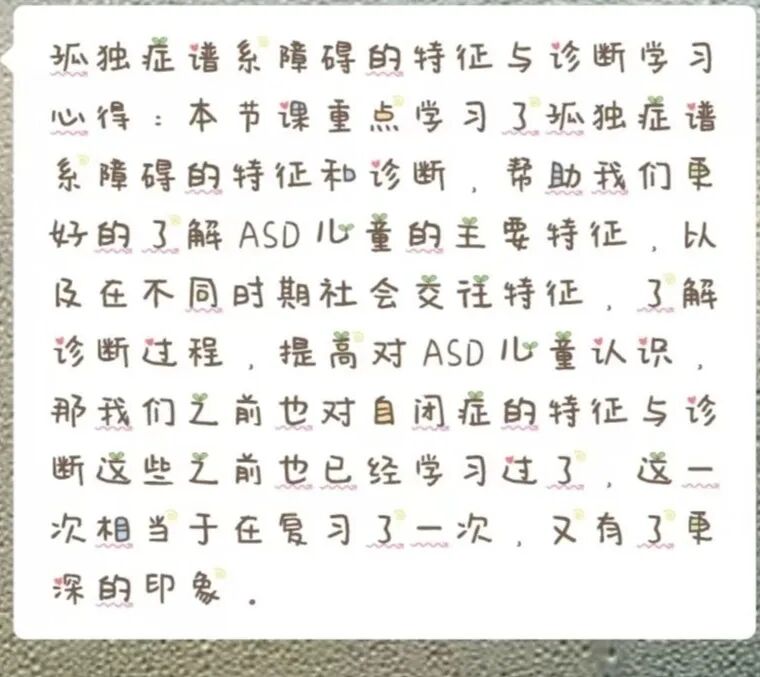 孤独症谱系障碍的特征与诊断学习
心得：本节课重点学习了孤独症谱
系障碍的特征和诊断，帮助我们更
好的了解ASD儿童的主要特征，以
及在不同时期社会交往特征，了解
诊断过程，提高对ASD儿童认识，
那我们之前也对自闭症的特征与诊
断这些之前也已经学习过了，这一
次相当于在复习了一次，又有了更
深的印象．